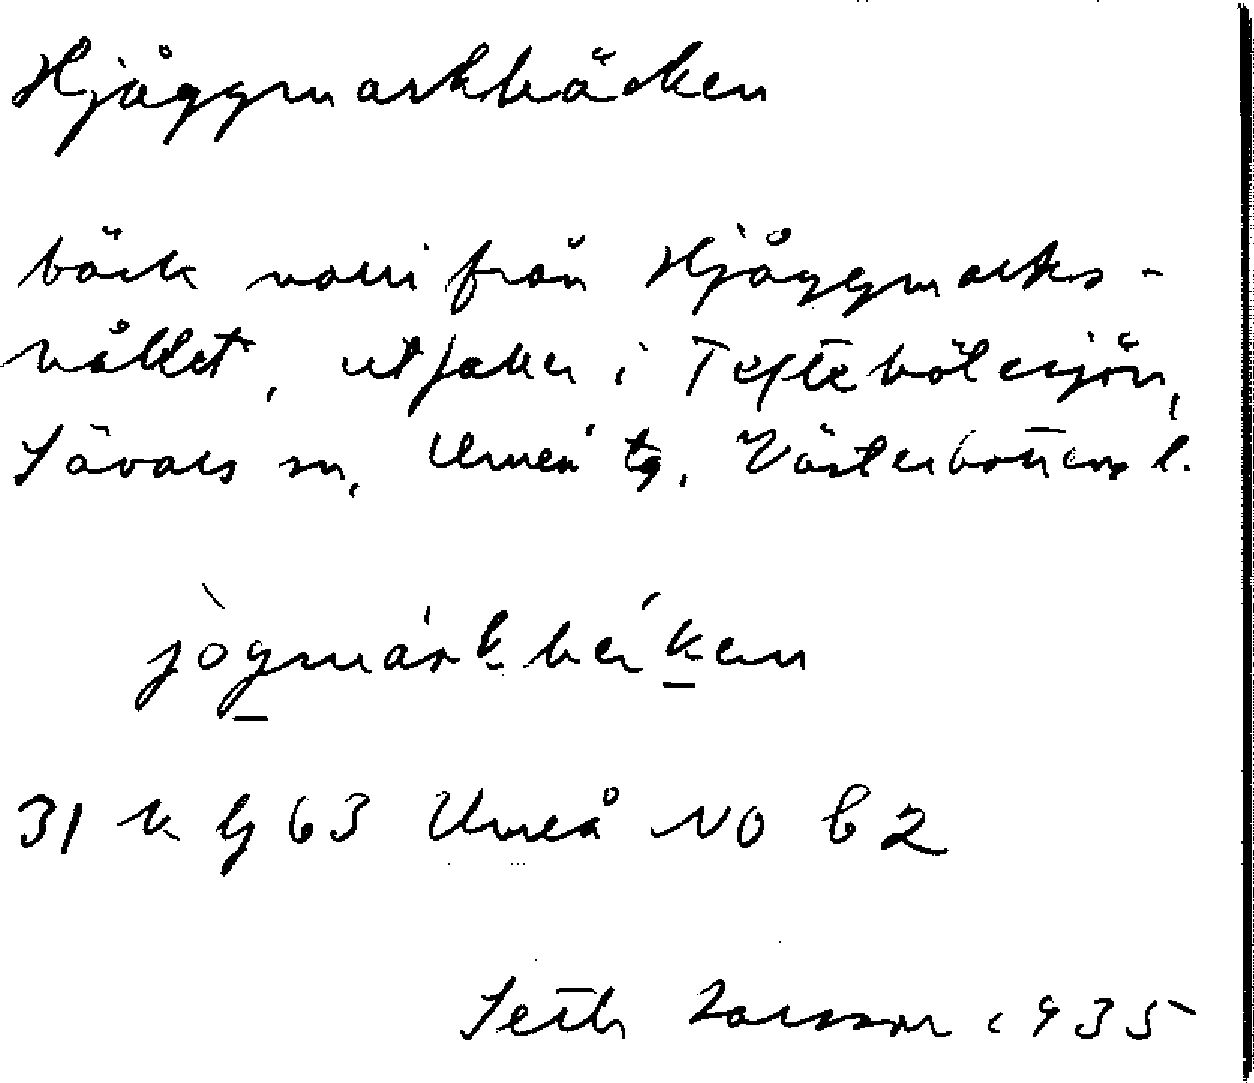 Hjåggmarkbäcken
bäck norri från Hjåggmarks-
nåkket, utfaller i Teftebölesjön,
Sävars sn, Umeå tg, Västerbottens l.
jògmárkbéken
31 k G 63 Umeå NO b2
Seth Larsson 1935